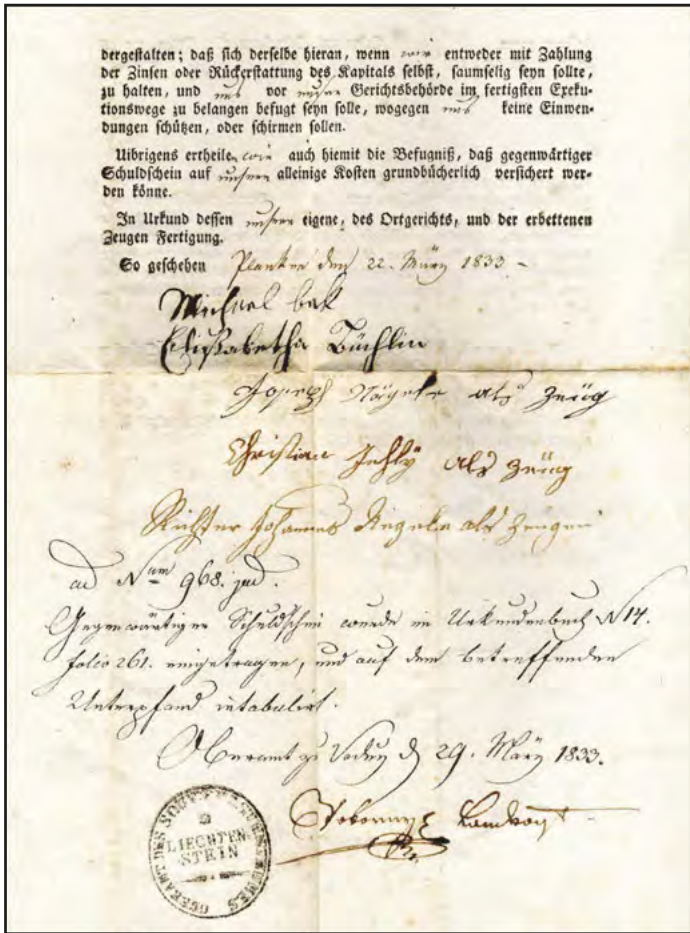 dergestalten; daß sich derselbe hieran, wenn wir entweder mit Zahlung
der Zinsen oder Rückerstattung des Kapitals selbst, saumselig seyn sollte,
zu halten, und uns vor unsrer Gerichtsbehörde im fertigsten Exeku-
tionswege zu belangen befugt seyn solle, wogegen uns keine Einwen-
dungen schützen, oder schirmen sollen.
Uibrigens ertheilen wir auch hiemit die Befugniß, daß gegenwärtiger
Schuldschein auf unsere alleinige Kosten grundbücherlich versichert wer-
den könne.
In Urkund dessen unsere eigene, des Ortgerichts, und der erbettenen
Zeugen Fertigung.
So geschehen Planken den 22. März 1833 -
Michael bek
Elißabetha Büchlin
Joseph Nägele als Zeüg
Christian Jehly als Zeüg
Richter Johannes Negele als Zeugen
ad Num 968. jud.
Gegenwärtiger Schuldschein wurde im Urkundenbuch N 14.
folio 261. eingetragen, und auf dem betreffenden
Unterpfand intabulirt.
Oberamt zu Vaduz d 29. März 1833.
Pokorny Landvogt
OBERAMT DES SOUV FÜRSTENTHUMES
LIECHTEN
STEIN